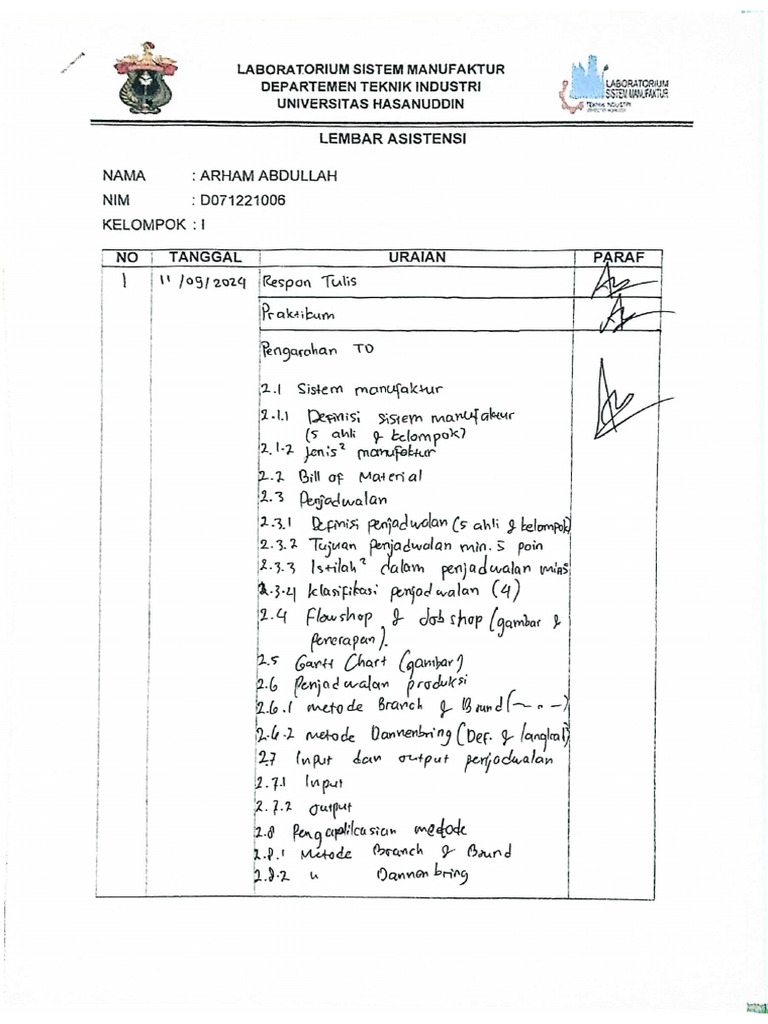 LABORATORIUM SISTEM MANUFAKTUR
DEPARTEMEN TEKNIK INDUSTRI
UNIVERSITAS HASANUDDIN
LABORATORIUM
SISTEM MANUFAKTUR
TEKNIK INDUSTRI
LEMBAR ASISTENSI
NAMA : ARHAM ABDULLAH
NIM : D071221006
KELOMPOK : I
NO TANGGAL URAIAN PARAF
1 11/09/2024 Respon Tulis
Praktikum
Pengarahan TD
2.1 Sistem manufaktur
2.1.1 Definisi sistem manufaktur
(5 ahli & kelompok)
2.1.2 Jenis² manufaktur
2.2 Bill of Material
2.3 Penjadwalan
2.3.1 Definisi penjadwalan (5 ahli & kelompok)
2.3.2 Tujuan penjadwalan min. 5 poin
2.3.3 Istilah² dalam penjadwalan min5
2.3.4 Klasifikasi penjadwalan (4)
2.4 Flowshop & Jobshop (gambar &
penerapan).
2.5 Gantt Chart (gambar)
2.6 Penjadwalan produksi
2.6.1 metode Branch & Bound (~ " ~)
2.6.2 metode Dannenbring (Def. & langkah)
2.7 Input dan output penjadwalan
2.7.1 Input
2.7.2 output
2.8 Pengaplikasian metode
2.8.1 Metode Branch & Bound
2.8.2 " Dannenbring